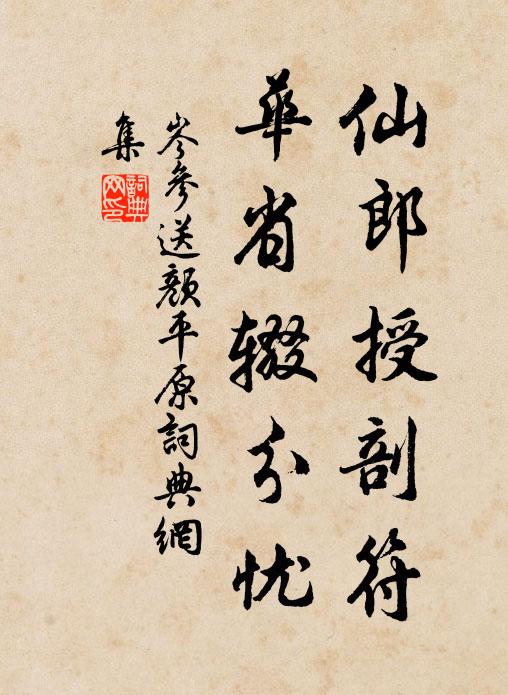 仙郎授剖符
華省辍分忧
岑參送顔平原詞典網
集
詞典
网印